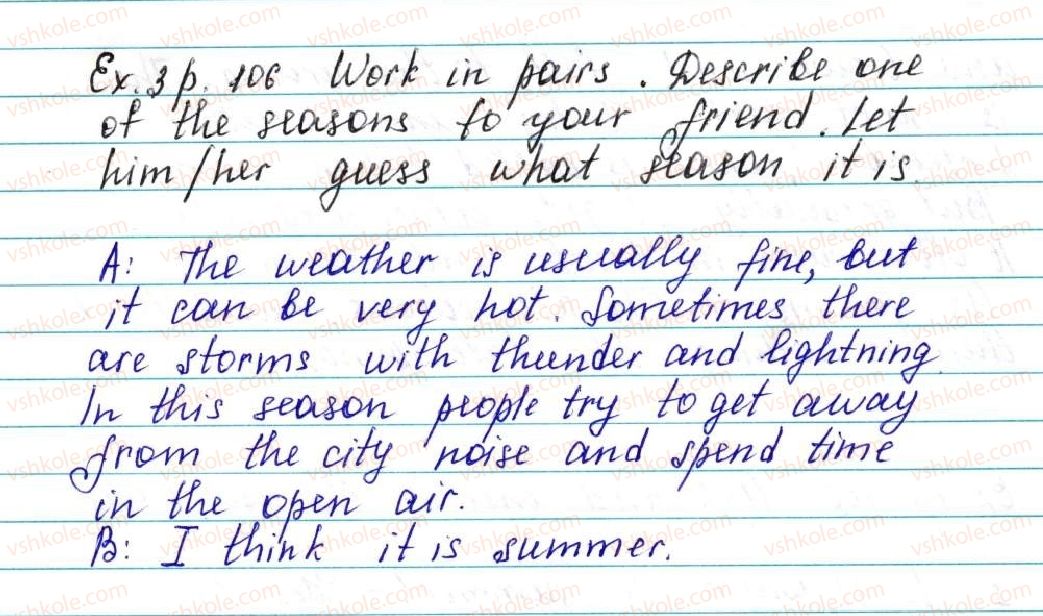 Ex. 3 p. 106 Work in pairs. Describe one
of the seasons to your friend. Let
him/her guess what season it is.
A: The weather is usually fine, but
it can be very hot. Sometimes there
are storms with thunder and lightning.
In this season people try to get away
from the city noise and spend time
in the open air.
B: I think it is summer.